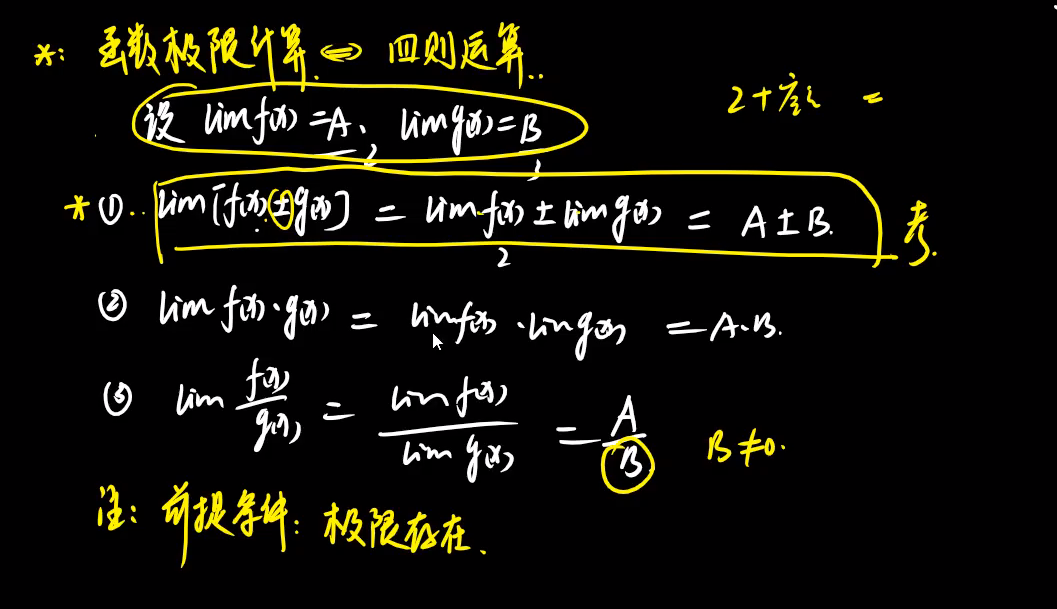 *: 函数极限计算 ⇔ 四则运算..
设 lim f(x) = A, lim g(x) = B
2 + =
* ①.. lim [f(x) ± g(x)] = lim f(x) ± lim g(x) = A ± B. 考.
2
② lim f(x)·g(x) = lim f(x) · lim g(x) = A·B.
③ lim f(x)/g(x) = lim f(x)/lim g(x) = A/B B≠0.
注: 前提条件: 极限存在.